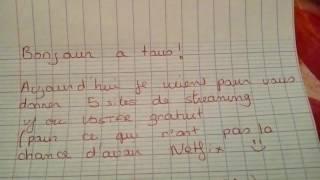 Bonjour a tous!
Aujourd'hui je vient pour vous
donner 5 sites de streaming
vf ou VOSTFR gratuit
(pour ce qui n'ont pas la
chance d'avoir Netflix ☺